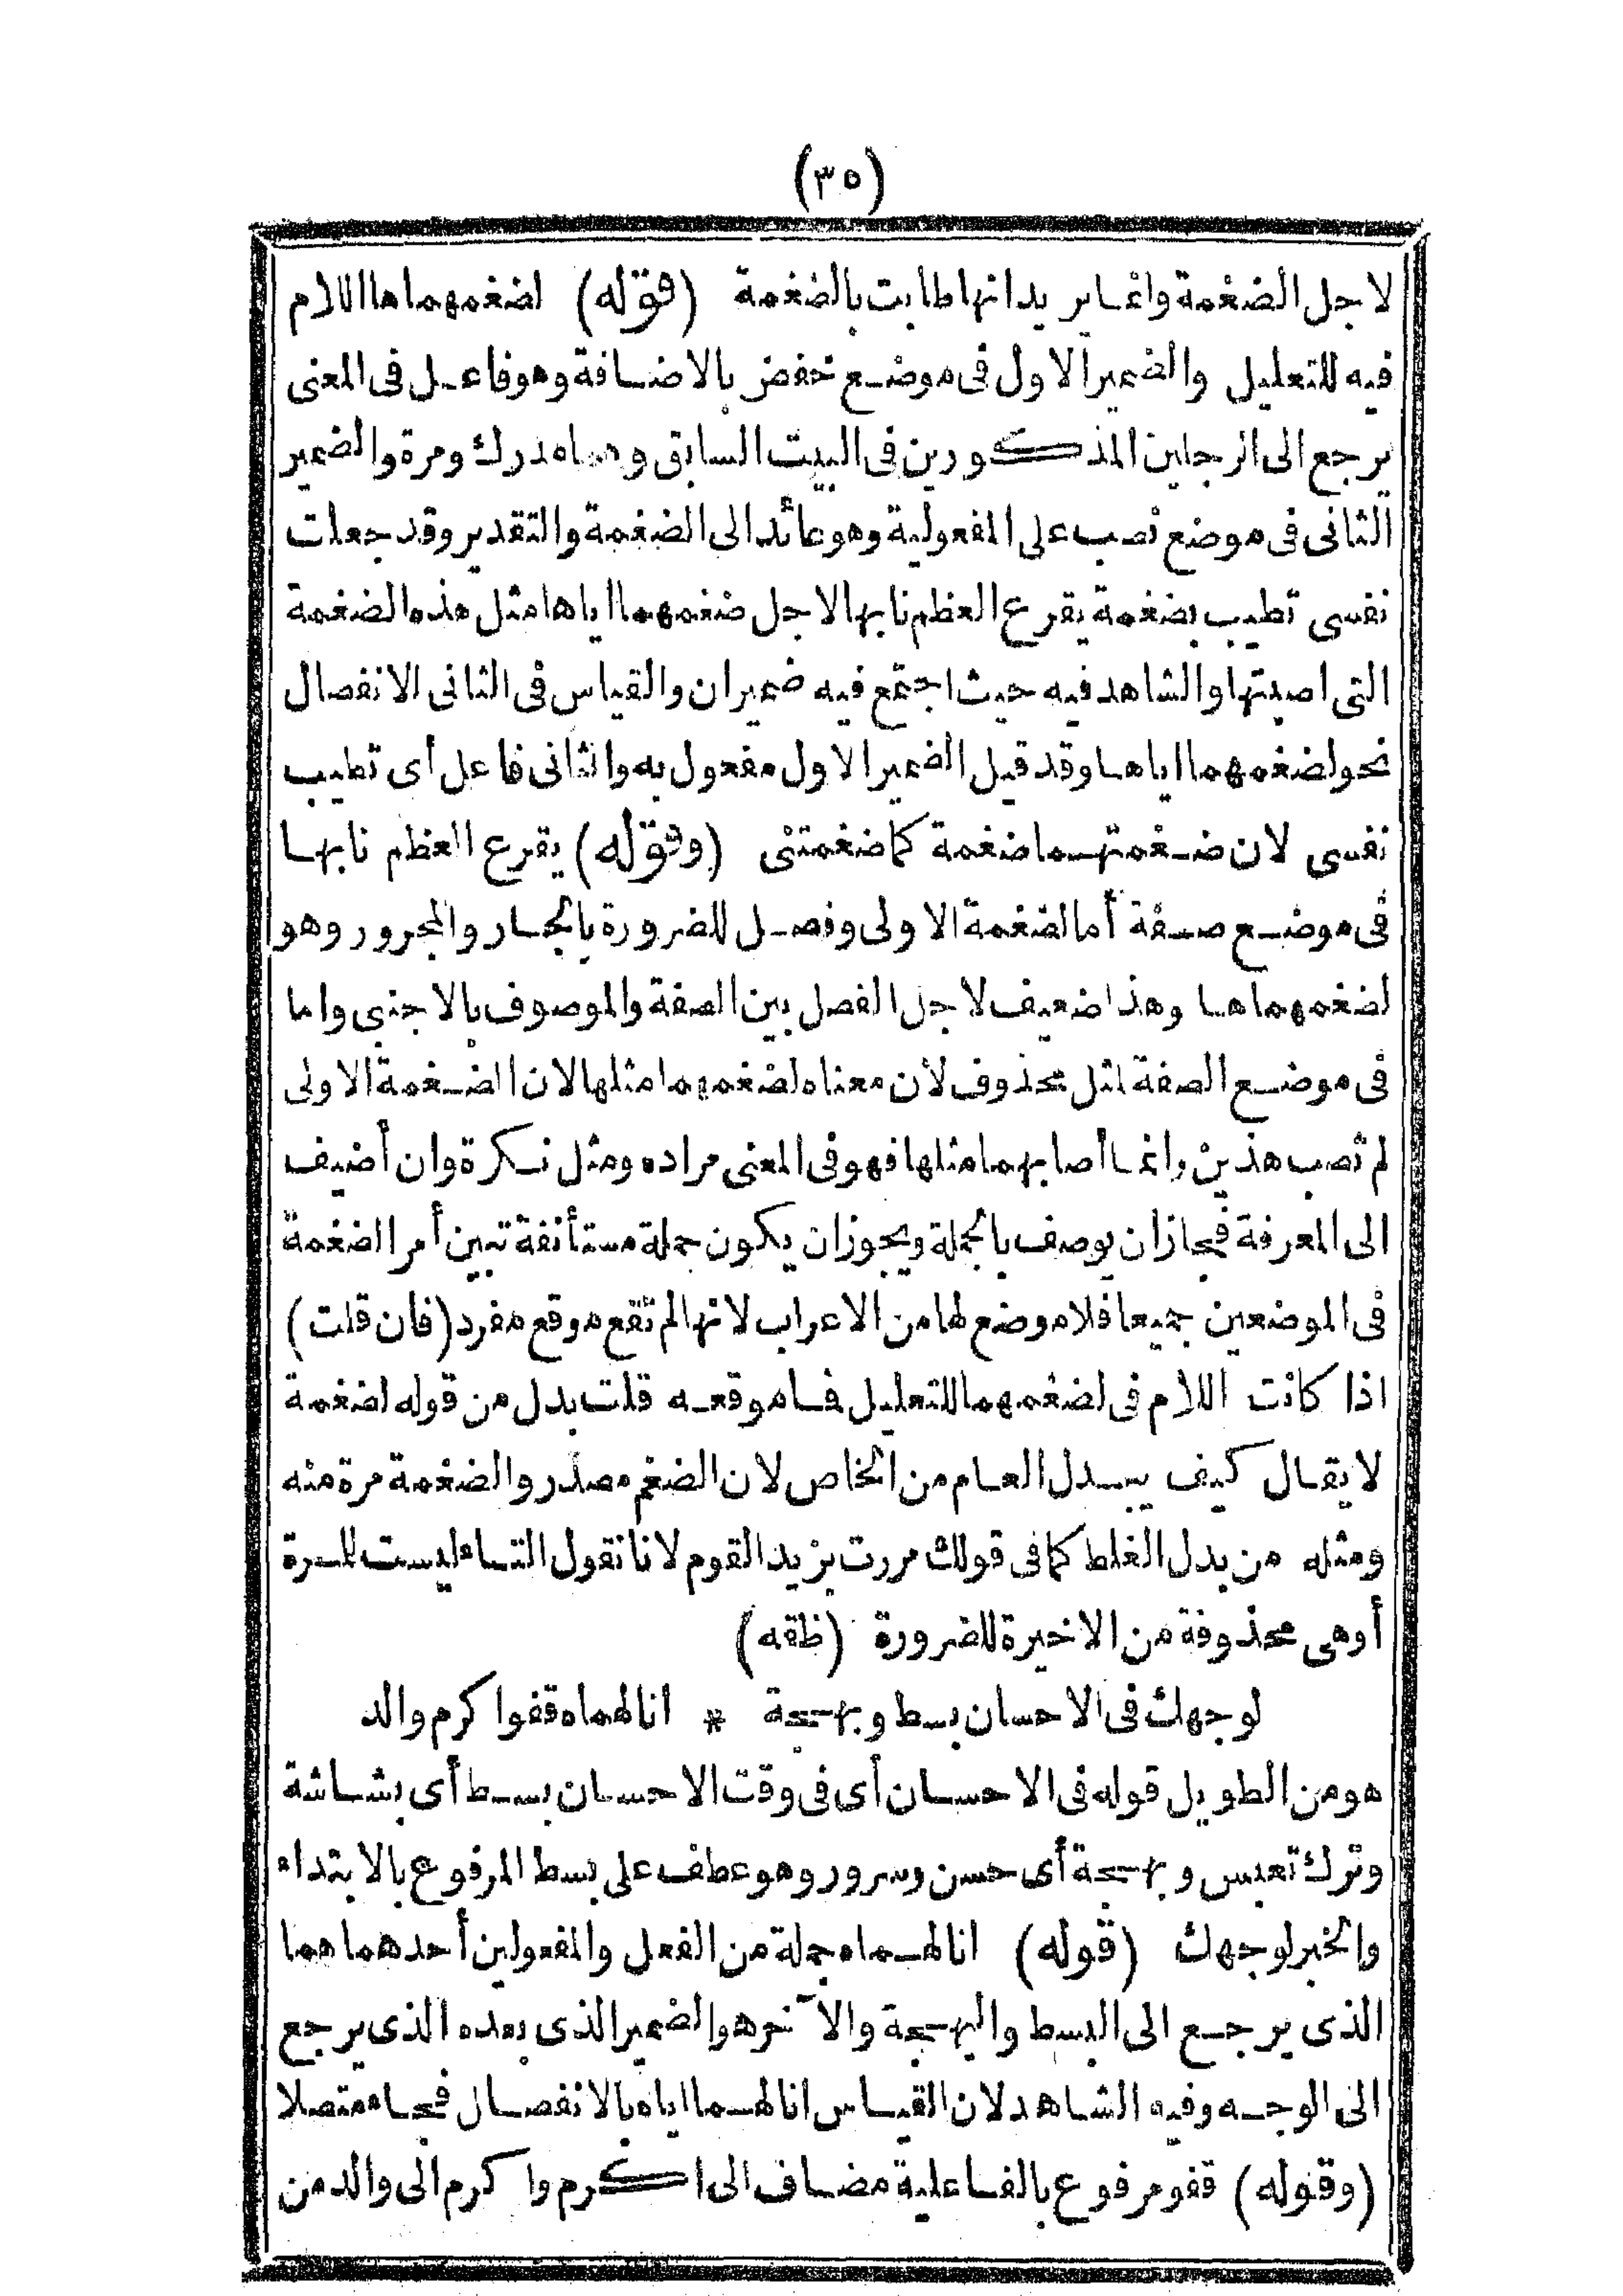 (٣٥)
لاجل الضغمة وانما يريد انها طابت بالضغمة (فقوله) لضغمهماها اللام
فيه للتعليل والضمير الاول فى موضع خفض بالاضافة وهو فاعل فى المعنى
يرجع الى الرجلين المذكورين فى البيت السابق وهما مدرك ومرة والضمير
الثانى فى موضع نصب على المفعولية وهو عائد الى الضغمة والتقدير وقد جعلت
نفسى تطيب بضغمة يقرع العظم نابها لاجل ضغمهما اياها مثل هذه الضغمة
التى اصبتها والشاهد فيه حيث اجتمع فيه ضميران والقياس فى الثانى الانفصال
نحو لضغمهما اياها وقد قيل الضمير الاول مفعول به والثانى فاعل أى تطيب
نفسى لان ضغمتهما ضغمة كما ضغمتنى (وقوله) يقرع العظم نابها
فى موضع صفة أما لضغمة الاولى وفصل للضرورة بالجار والمجرور وهو
لضغمهماها وهذا ضعيف لاجل الفصل بين الصفة والموصوف بالاجنبى واما
فى موضع الصفة لمثل محذوف لان معناه لضغمهما مثلها لان الضغمة الاولى
لم تصب هذين وانما أصابهما مثلها فهو فى المعنى مراده ومثل نكرة وان أضيف
الى المعرفة فجاز ان يوصف بالجملة ويجوز ان يكون جملة مستأنفة تبين أمر الضغمة
فى الموضعين جميعا فلا موضع لها من الاعراب لانها لم تقع موقع مفرد (فان قلت)
اذا كانت اللام فى لضغمهما للتعليل فما موقعه قلت بدل من قوله لضغمة
لا يقال كيف يبدل العام من الخاص لان الضغم مصدر والضغمة مرة منه
ومثله من بدل الغلط كما فى قولك مررت بزيد القوم لانا نقول التاء ليست للمرة
أو هى محذوفة من الاخيرة للضرورة (ظقه)
لوجهك فى الاحسان بسط وبهجة * انالهماه قفو اكرم والد
هو من الطويل قوله فى الاحسان أى فى وقت الاحسان بسط أى بشاشة
وترك تعبس وبهجة أى حسن وسرور وهو عطف على بسط المرفوع بالابتداء
والخبر لوجهك (قوله) انالهماه جملة من الفعل والمفعولين أحدهما هما
الذى يرجع الى البسط والبهجة والآخر هو الضمير الذى بعده الذى يرجع
الى الوجه وفيه الشاهد لان القياس انالهما اياه بالانفصال فجاء متصلا
(وقوله) قفو مرفوع بالفاعلية مضاف الى اكرم واكرم الى والد من